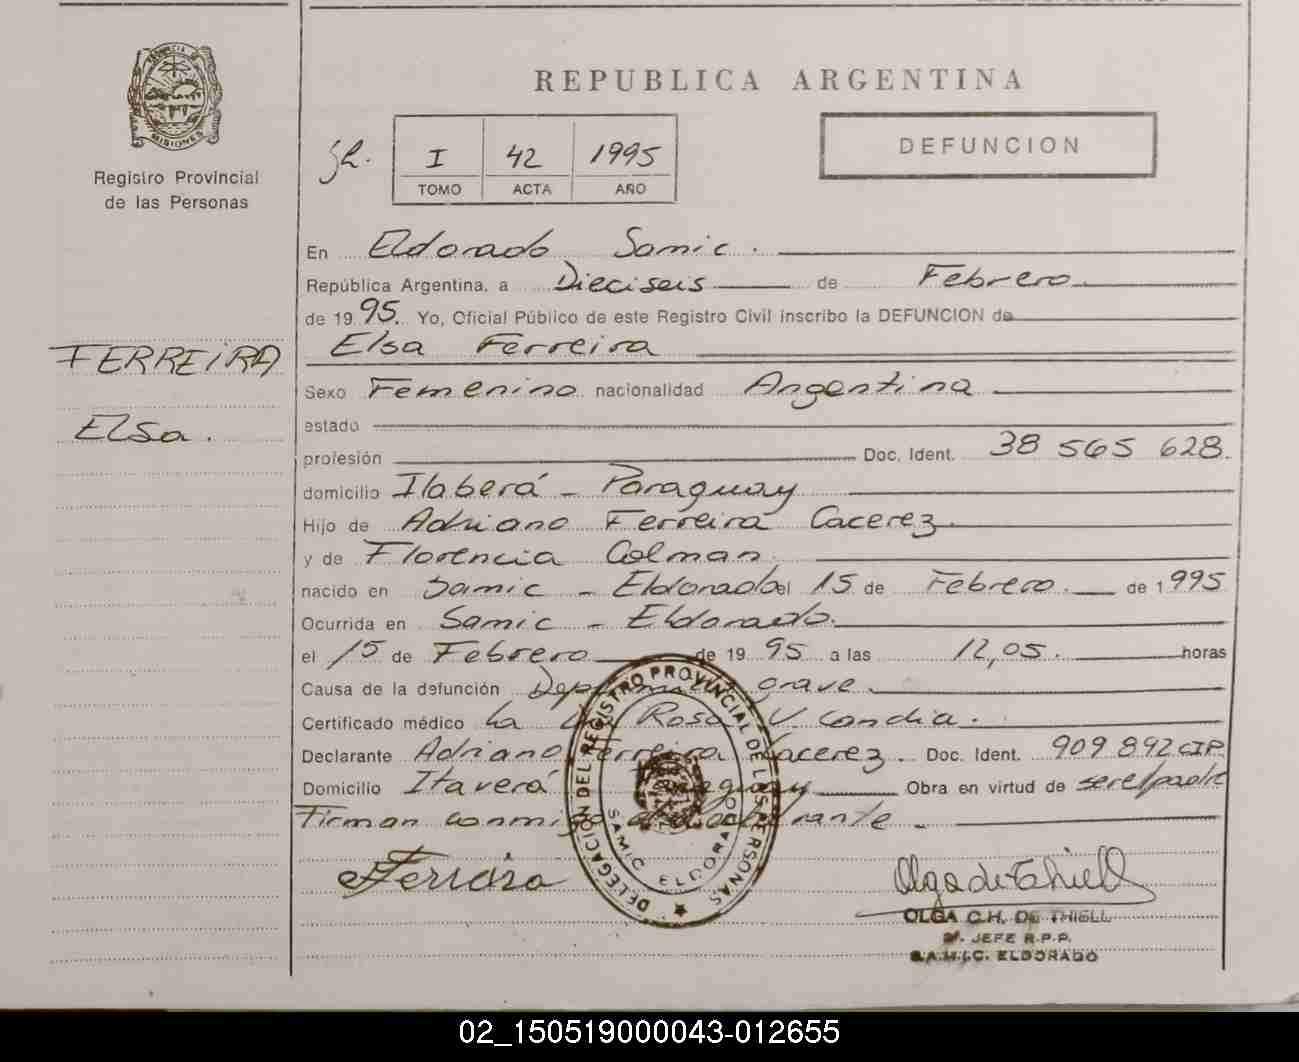 PROVINCIA DE
MISIONES
Registro Provincial
de las Personas
FERREIRA
Elsa.
REPUBLICA ARGENTINA
I 42 1995
TOMO ACTA AÑO
DEFUNCION
En Eldorado Samic.
República Argentina, a Dieciseis de Febrero
de 1995. Yo, Oficial Público de este Registro Civil inscribo la DEFUNCION de
Elsa Ferreira
Sexo Femenino nacionalidad Argentina
estado
profesión Doc. Ident. 38 565 628.
domicilio Itaberá - Paraguay
Hijo de Adriano Ferreira Cacerez
y de Florencia Colman
nacido en Samic - Eldorado el 15 de Febrero. de 1995
Ocurrida en Samic - Eldorado.
el 15 de Febrero de 1995 a las 12,05. horas
Causa de la defunción grave
Certificado médico La Rosa V. Candia.
Declarante Adriano Ferreira Cacerez. Doc. Ident. 909.892 CIP.
Domicilio Itaverá Paraguay Obra en virtud de ser el padre
Firman conmigo el declarante
DELEGACION DEL REGISTRO PROVINCIAL DE LAS PERSONAS
SAMIC ELDORADO
Ferreira
Olga de Thiell
OLGA C.H. DE THIELL
JEFE R.P.P.
S.A.M.I.C. ELDORADO
02_150519000043-012655